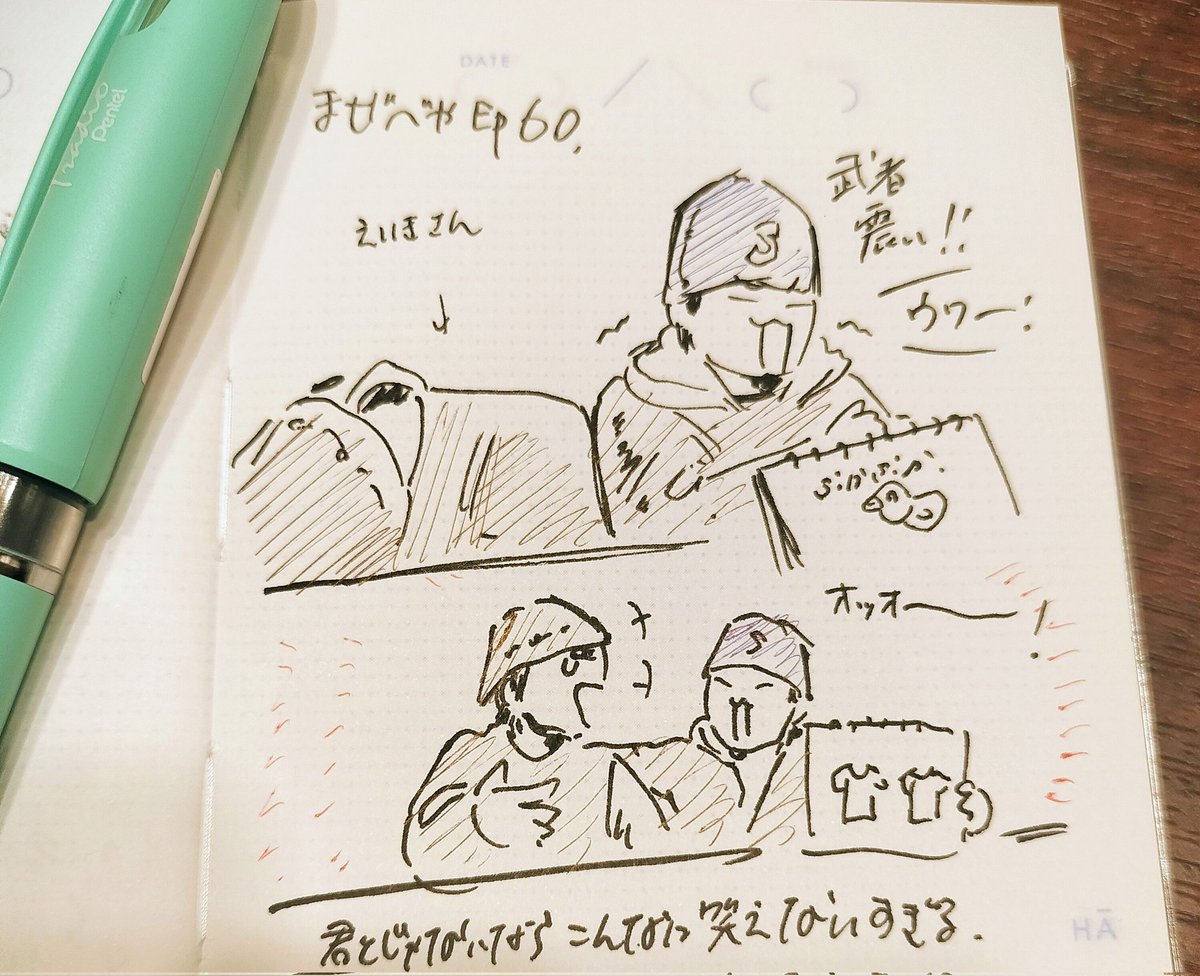 Tradio
Pentel
DATE
まぜべや Ep 60.
えいきさん
武者
震い!!
ウワー!
ぷかぷか
S
オッオー!
S
君とじゃないなら こんなに 笑えないすぎる.
HĀ